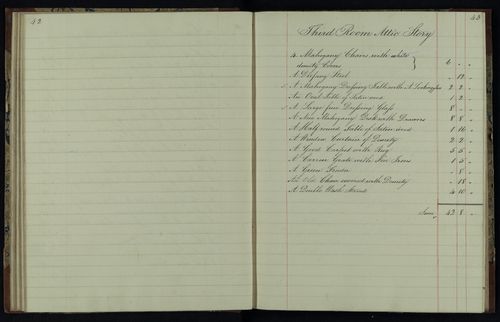 42
43
Third Room Attic Story
4 Mahogany Chairs with white
dimity Covers } 6 - -
A Dressing Stool - 12 -
A Mahogany Dressing Table with A Lookingglass 2 2 -
An Oval Table of Satin wood 1 2 -
A Large fine Dressing Glass 8 - -
A New Mahogany Desk with Drawers 8 8 -
A Half round Table of Satin wood 1 16 -
A Window Curtain of Dimity 2 2 -
A Good Carpet with Rug 5 5 -
A Carron Grate with Fire Irons 1 5 -
A Green Fender - 8 -
An Old Chair covered with Dimity - 18 -
A Double Wash Stand 4 10 -
Sum 42 8 -